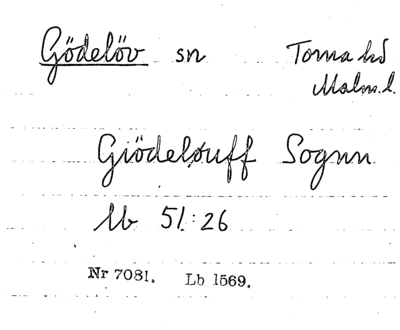 Gödelöv sn Torna hd
Malm.l.
Giödelouff Sognn
lb 51:26
Nr 7081. Lb 1569.